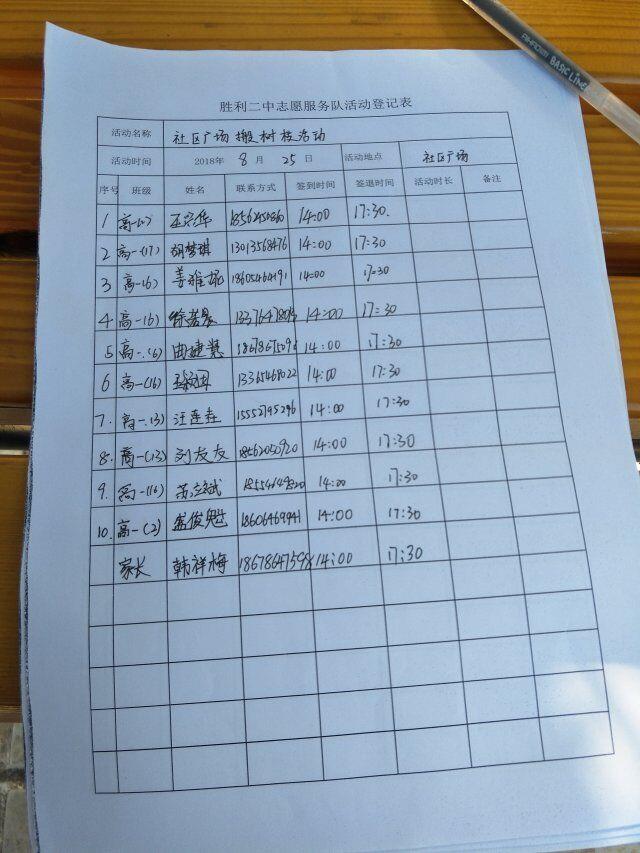 AIHAO BASIC LINE
胜利二中志愿服务队活动登记表
活动名称 社区广场搬树枝活动
活动时间 2018年 8 月 25 日 活动地点 社区广场
序号 班级 姓名 联系方式 签到时间 签退时间 活动时长 备注
1 14:00 17:30.
2 高一(17) 胡梦琪 13013568476 14:00 17:30
3 高一(6) 姜雅 18605464191 14:00 17:30
4 高一(6) 14:00 17:30
5 高一.(6) 曲建慧 14:00 17:30
6 高一(16) 13365468022 14:00 17:30
7. 高一.13) 汪连垚 15552795296 14:00 17:30
8. 高一(13) 刘友友 18562050920 14:00 17:30
9. 高一(16) 苏立斌 14:00 17:30
10. 高一(2) 俊魁 18606469941 14:00 17:30
家长 韩祥梅 14:00 17:30